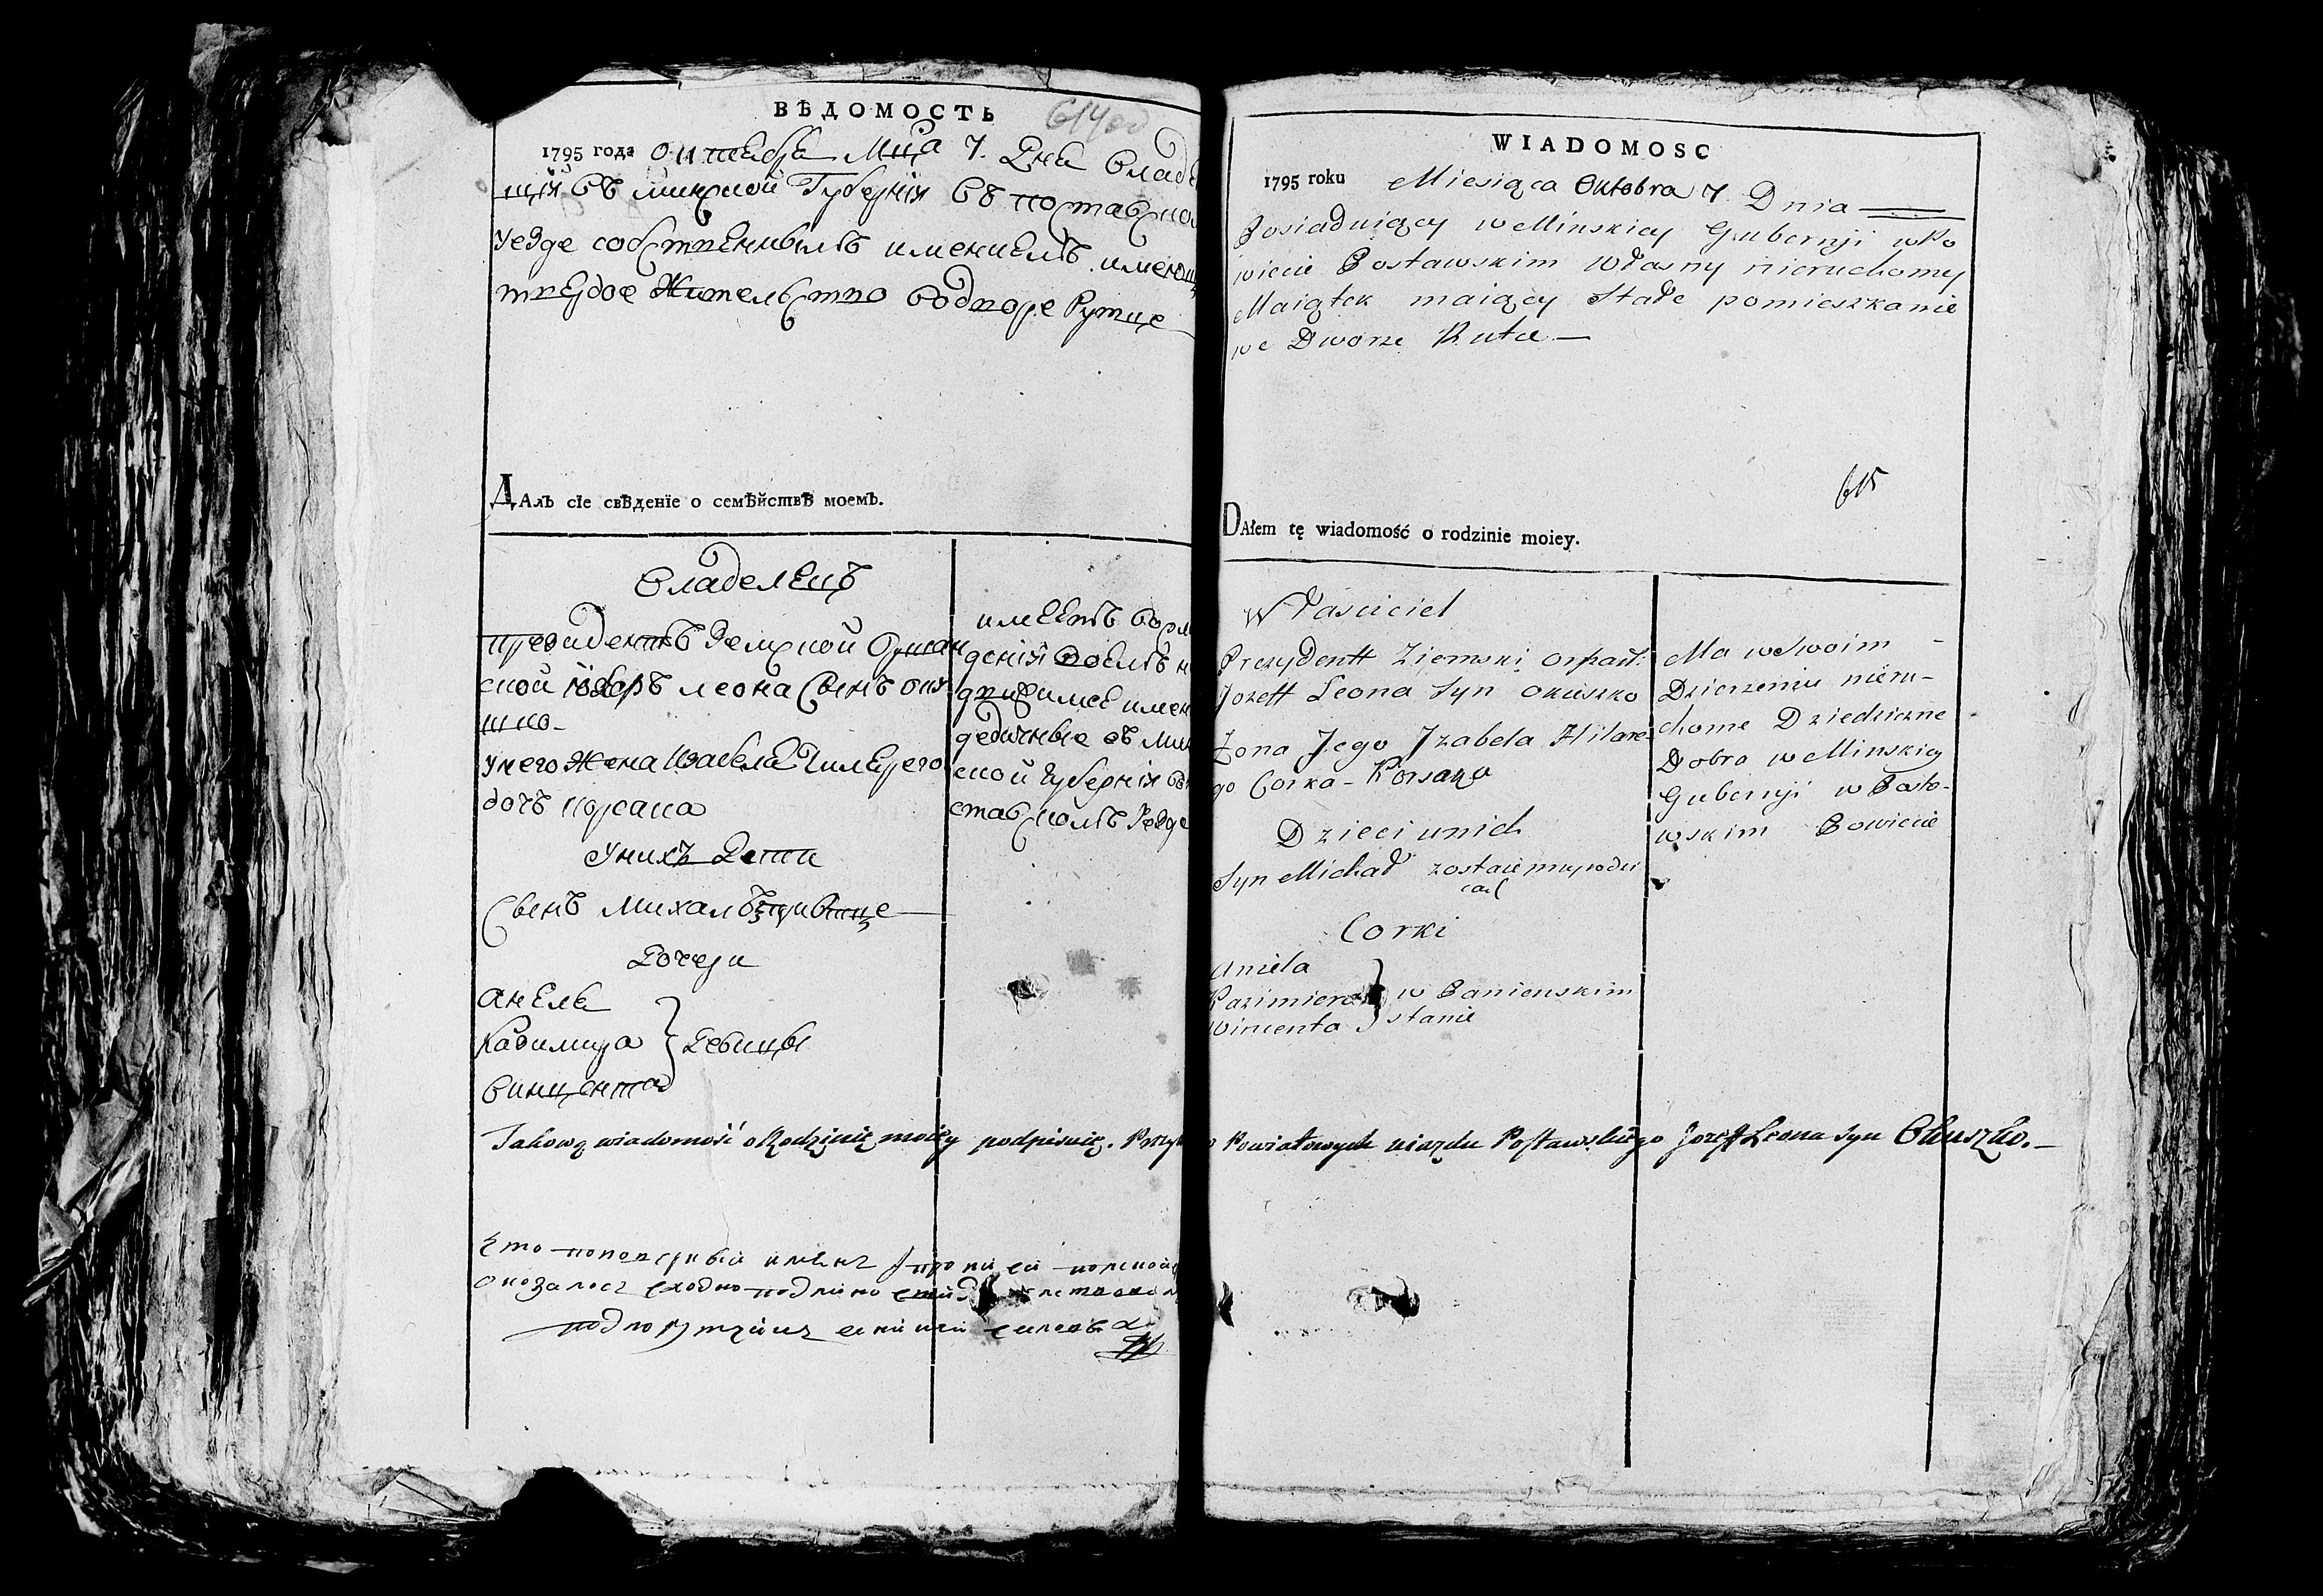 ВѢДОМОСТЬ
614об
1795 года октября Мца 7. Дня владе
щій въ минской Губерніи въ поставско
уезде собственнымъ имениемъ имеющ
твердое Жительство водворе Рутце
ДАлъ сїе свѣденїе о семѣйствѣ моемъ.
Владелецъ
президентъ Земской Оршан
ской Юзефъ леона Сынъ оку
шко
унего Жена Изабела Гилярего
дочъ корсака
Унихъ Дети
Сынъ Михалъ
Дочери
анеля
Казимира } Девицы
винцента
имеетъ восм
денія воемъ н
движимое имен
дедичные въ мин
ской Губерніи въ
ставскомъ Уезде
WIADOMOSC
1795 roku Miesiąca Oktobra 7. Dnia
Posiaduiący w Minskiey Gubernji w Po
wiecie Postawskim Własny nieruchomy
Maiątek maiący Stałe pomieszkanie
we Dworze Rutce
615
DAłem tę wiadomość o rodzinie moiey.
Właściciel
Prezydentt Ziemski
Jozeff Leona Syn Okuszko
Zona Jego Jzabela Hilare
go Corka - Korsaka
Dzieci unich
Syn Michał zostaie przy rodzi
cach
Corki
Aniela
Kazimiera } w Panienskim
Wincenta stanie
Ma w Swoim
Dzierzeniu nieru-
chome Dziedziczne
Dobra w Minskiey
Gubernji w Posta-
wskim Powiecie
Takową wiadomość o Rodzinie moiey podpisuię. Powiatowych uiazdu Postawskiego Jozeff Leona Syn Okuszko.
оказалось сходно